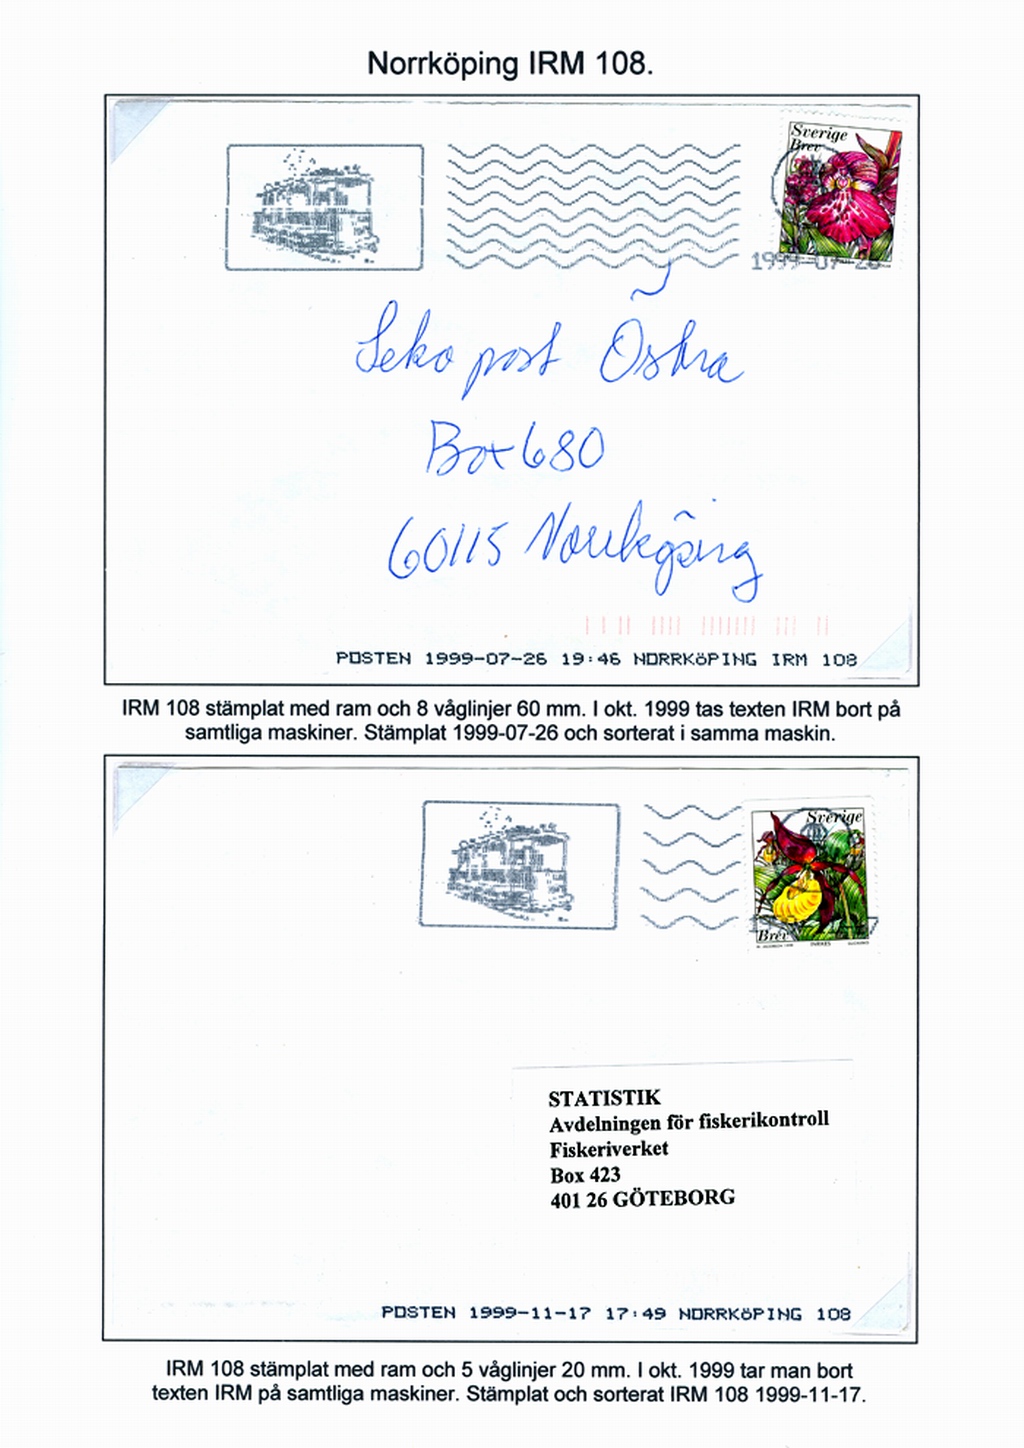 Norrköping IRM 108.
Sverige
Brev
1999-07-26
Seko post Östra
Box 680
60115 Norrköping
POSTEN 1999-07-26 19:46 NORRKÖPING IRM 108
IRM 108 stämplat med ram och 8 våglinjer 60 mm. I okt. 1999 tas texten IRM bort på
samtliga maskiner. Stämplat 1999-07-26 och sorterat i samma maskin.
Sverige
Brev
STATISTIK
Avdelningen för fiskerikontroll
Fiskeriverket
Box 423
401 26 GÖTEBORG
POSTEN 1999-11-17 17:49 NORRKÖPING 108
IRM 108 stämplat med ram och 5 våglinjer 20 mm. I okt. 1999 tar man bort
texten IRM på samtliga maskiner. Stämplat och sorterat IRM 108 1999-11-17.